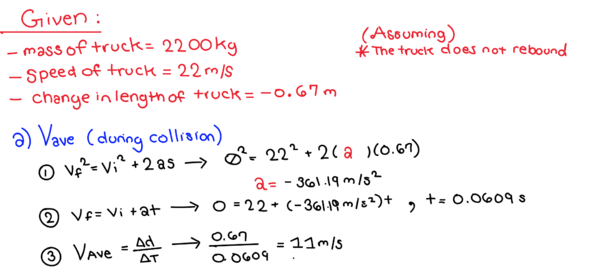 Given :
- mass of truck = 2200kg
- Speed of truck = 22m/s
- change in length of truck = -0.67m
(Assuming)
* The truck does not rebound
a) Vave (during collision)
① Vf² = Vi² + 2as → 0² = 22² + 2(a)(0.67)
a = -361.19m/s²
② Vf = Vi + at → 0 = 22 + (-361.19m/s²)t , t = 0.0609s
③ VAve = Δd/ΔT → 0.67/0.0609 = 11m/s